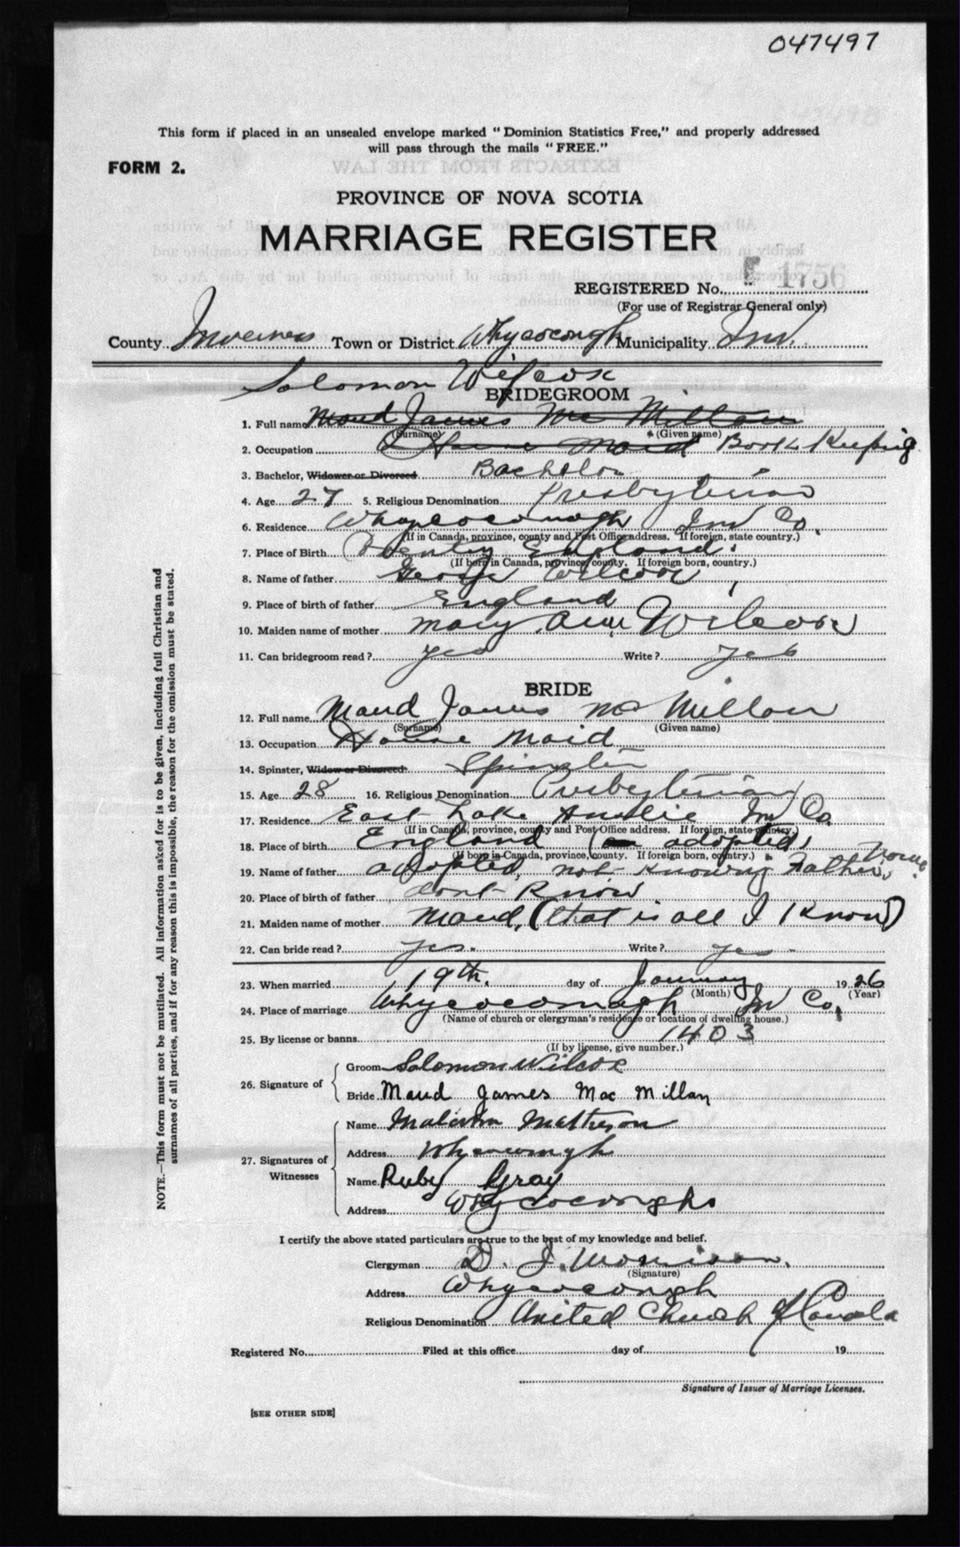 047497
This form if placed in an unsealed envelope marked "Dominion Statistics Free," and properly addressed
will pass through the mails "FREE."
FORM 2.
PROVINCE OF NOVA SCOTIA
MARRIAGE REGISTER
REGISTERED No. 1756
(For use of Registrar General only)
County Inverness Town or District Whycocongh Municipality Inv.
Solomon Wilcox
BRIDEGROOM
1. Full name Maud James Mc Millan
(Surname) (Given name)
2. Occupation House Maid Book Keeping
3. Bachelor, Widower or Divorced Bachelor
4. Age 27 5. Religious Denomination Presbyterian
6. Residence Whycocomagh Inv Co.
(If in Canada, province, county and Post Office address. If foreign, state country.)
7. Place of Birth England.
(If born in Canada, province, county. If foreign born, country.)
8. Name of father George Wilcox
9. Place of birth of father England
10. Maiden name of mother Mary Ann Wilcox
11. Can bridegroom read? yes Write? yes
BRIDE
12. Full name Maud James Mc Millan
(Surname) (Given name)
13. Occupation House Maid
14. Spinster, Widow or Divorced Spinster
15. Age 28 16. Religious Denomination Presbyterian
17. Residence East Lake Ainslie Inv Co.
(If in Canada, province, county and Post Office address. If foreign, state country.)
18. Place of birth England (adopted)
(If born in Canada, province, county. If foreign born, country.)
19. Name of father adopted, not knowing Father's name.
20. Place of birth of father dont Know
21. Maiden name of mother Maud, (that is all I know)
22. Can bride read? yes. Write? yes
23. When married 19th. day of January 1926
(Month) (Year)
24. Place of marriage Whycocomagh Inv Co.
(Name of church or clergyman's residence or location of dwelling house.)
25. By license or banns 1403
(If by license, give number.)
26. Signature of
Groom Solomon Wilcox
Bride Maud James Mac Millan
27. Signatures of Witnesses
Name Malcolm Matheson
Address Whycocomagh
Name Ruby Gray
Address Whycocomagh
I certify the above stated particulars are true to the best of my knowledge and belief.
Clergyman D. J. Morrison.
(Signature)
Address Whycocomagh
Religious Denomination United Church of Canada
Registered No. Filed at this office day of 19
Signature of Issuer of Marriage Licenses.
[SEE OTHER SIDE]
NOTE.—This form must not be mutilated. All information asked for is to be given, including full Christian and
surnames of all parties, and if for any reason this is impossible, the reason for the omission must be stated.